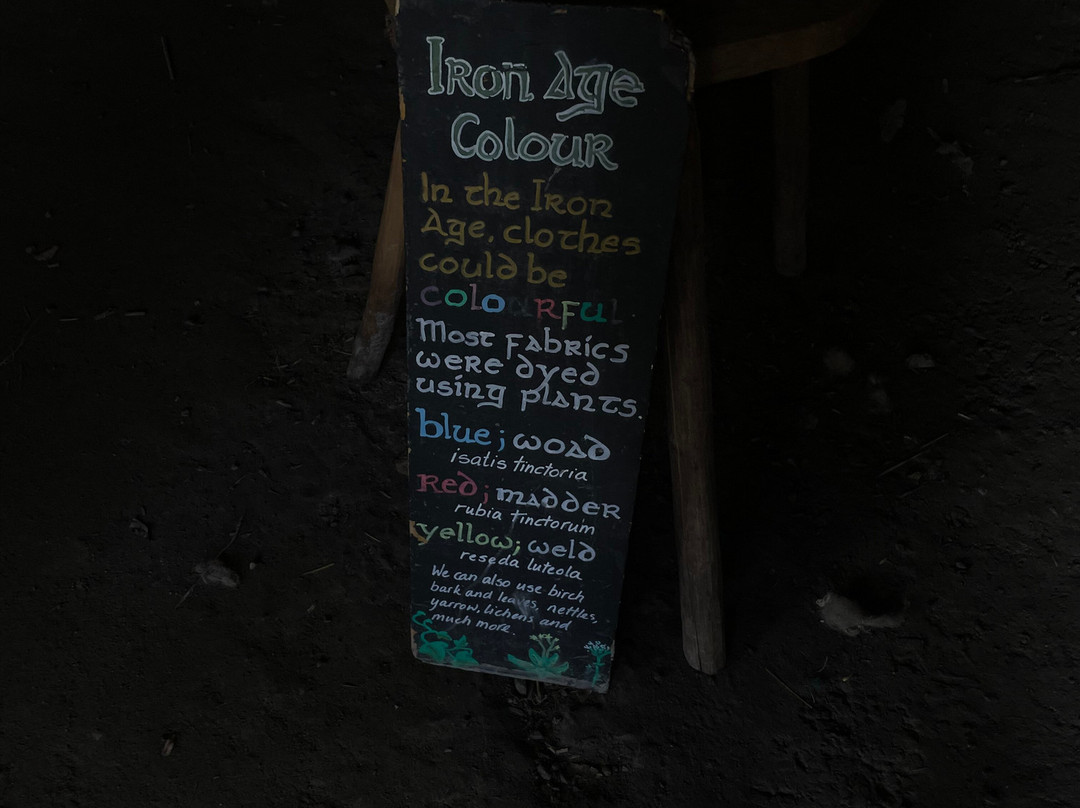 Iron Age
Colour
In the Iron
Age, clothes
could be
colourful
Most fabrics
were dyed
using plants.
blue; woad
isatis tinctoria
Red; madder
rubia tinctorum
yellow; weld
reseda luteola
We can also use birch
bark and leaves, nettles,
yarrow, lichens and
much more.